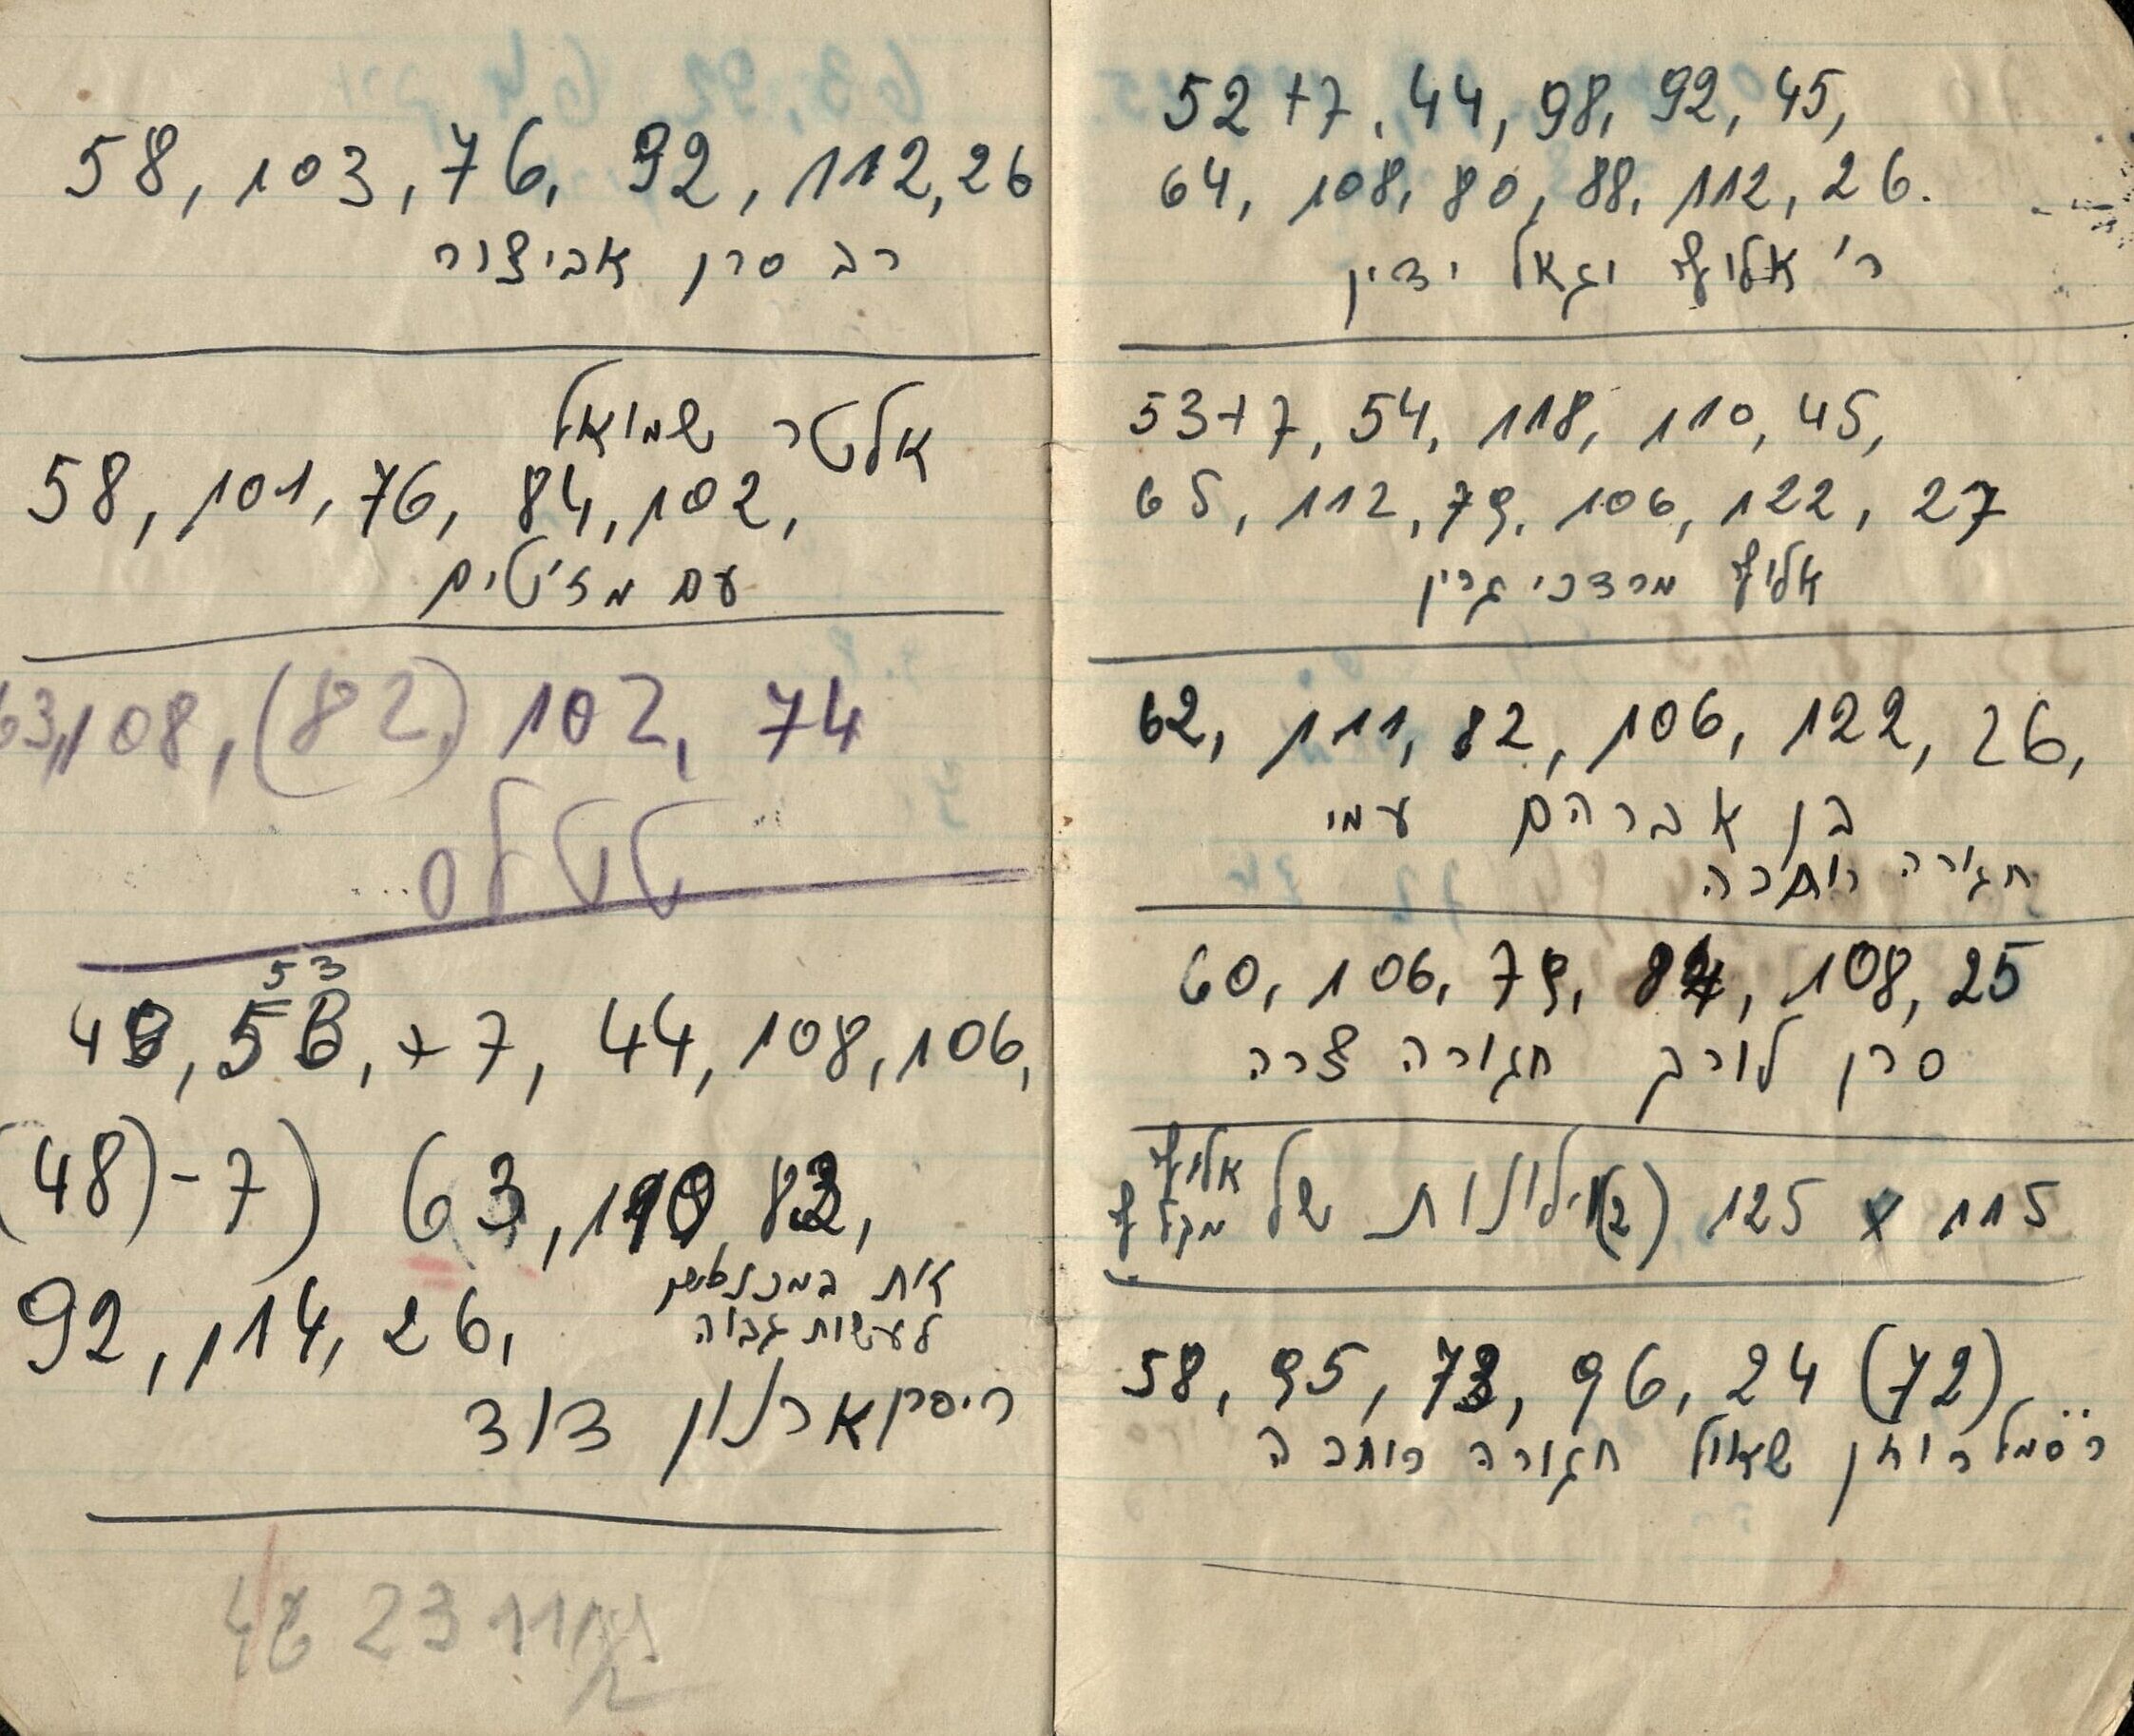 52 +7, 44, 98, 92, 45,
64, 108, 80, 88, 112, 26.
ר' אלוף יגאל ידין
53+7, 54, 118, 110, 45,
65, 112, 79, 106, 122, 27
אלוף מרדכי גרין
62, 111, 82, 106, 122, 26,
בן אברהם עמי
חגורה רחבה
60, 106, 79, 84, 108, 25
סרן לורך חגורה צרה
115 x 125 (2 וילונות של אלוף
מקלף
58, 95, 73, 96, 24 (72)
רסמל רוחן שאול חגורה רחבה
58, 103, 76, 92, 112, 26
רב סרן אביצור
אלטר שמואל
58, 101, 76, 84, 102,
עם מנז'טים
63, 108, (82,) 102, 74
53
+7, 44, 108, 106,
(48)-7) 63, 83,
92, 114, 26,
את
לעשות גבוה
דוד
48 23 11